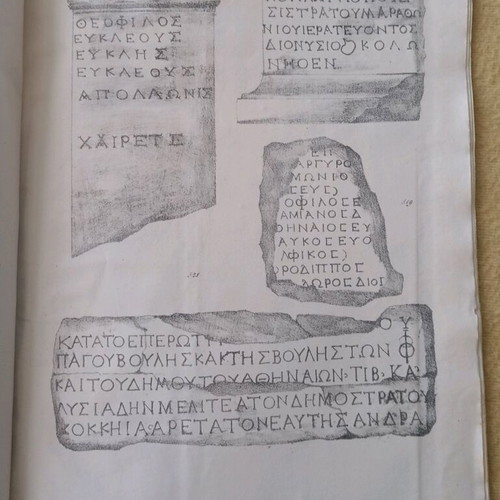 ΘΕΟΦΙΛΟΣ
ΕΥΚΛΕΟΥΣ
ΕΥΚΛΗΣ
ΕΥΚΛΕΟΥΣ
ΑΠΟΛΛΩΝΙΣ
ΧΑΙΡΕΤΕ
ΣΙΣΤΡΑΤΟΥΜΑΡΑΘΩ
ΝΙΟΥΙΕΡΑΤΕΥΟΝΤΟΣ
ΔΙΟΝΥΣΙΟΥΚΟΛΩ
ΝΗΘΕΝ
ΕΠΙ
ΑΡΓΥΡΟ
ΜΩΝΙΟ
ΣΕΥΣ)
ΟΦΙΛΟΣΕ
ΑΜΙΑΝΟΣΔ
ΘΗΝΑΙΟΣΕΥ
ΑΥΚΟΣΕΥΟ
ΛΦΙΚΟΣ)
ΡΟΔΙΠΠΟΣ
ΔΩΡΟΣΔΙΟΓ
ΚΑΤΑΤΟΕΠΕΡΩΤ
ΠΑΓΟΥΒΟΥΛΗΣΚΑΙΤΗΣΒΟΥΛΗΣΤΩΝΦ
ΚΑΙΤΟΥΔΗΜΟΥΤΟΥΑΘΗΝΑΙΩΝ·ΤΙΒ·ΚΛ
ΛΥΣΙΑΔΗΝΜΕΛΙΤΕΑΤΟΝΔΗΜΟΣΤΡΑΤΟΥ
ΚΟΚΚΗΙΑΑΡΕΤΑΤΟΝΕΑΥΤΗΣΑΝΔΡΑ